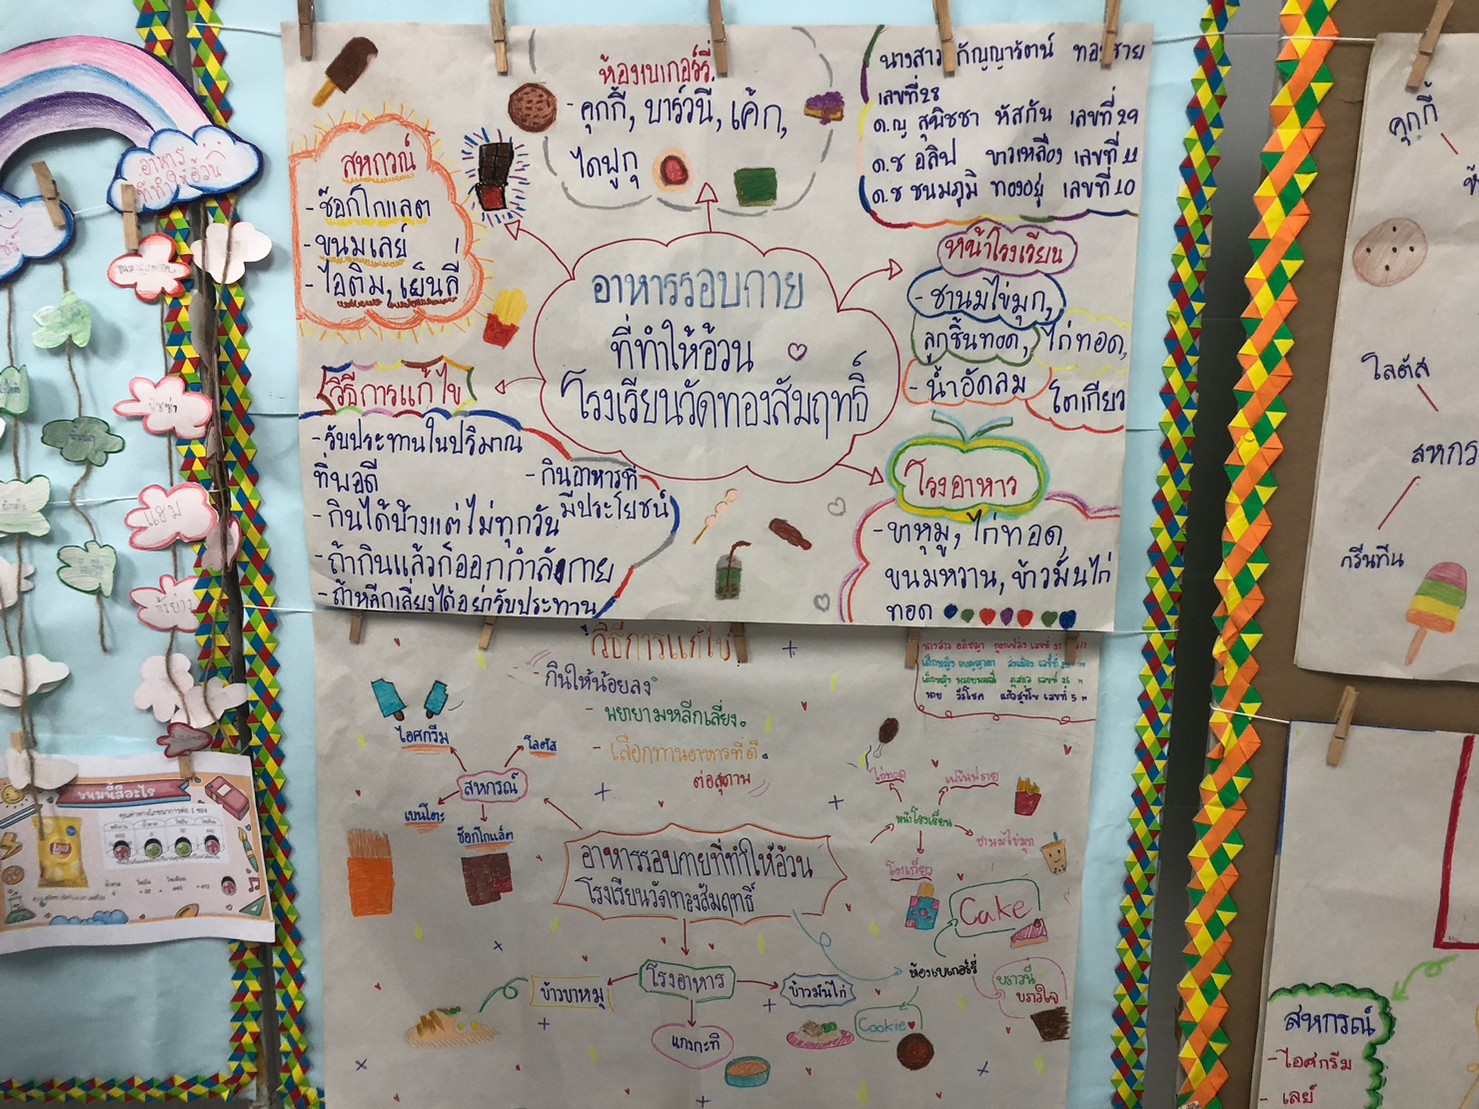 ห้องเบเกอร์รี่.
- คุกกี้, บาร์วนี, เค้ก,
ไดฟูกุ
นางสาว กัญญารัตน์ ทองชาย
เลขที่28
ด.ญ สุนิชชา หัสกัน เลขที่ 29
ด.ช อลิป ขาวเหลือง เลขที่ 11
ด.ช ชนมภูมิ ทองอยู่ เลขที่ 10
สหกรณ์
- ช๊อกโกแลต
- ขนมเลย์
- ไอติม, เย็นลี่
อาหารรอบกาย
ที่ทำให้อ้วน
โรงเรียนวัดทองสัมฤทธิ์
หน้าโรงเรียน
- ชานมไข่มุก,
ลูกชิ้นทอด, ไก่ทอด,
- น้ำอัดลม โตเกียว
วิธีการแก้ไข
- รับประทานในปริมาณ
ที่พอดี
- กินอาหารที่
มีประโยชน์
- กินได้บ้างแต่ไม่ทุกวัน
- ถ้ากินแล้วก็ออกกำลังกาย
- ถ้าหลีกเลี่ยงได้อย่ารับประทาน
โรงอาหาร
- ขาหมู, ไก่ทอด
ขนมหวาน, ข้าวมันไก่
ทอด
วิธีการแก้ไข
- กินให้น้อยลง
- พยายามหลีกเลี่ยง
- เลือกทานอาหารที่ดี
ต่อสุภาพ
ไอศกรีม
โลตัส
สหกรณ์
เบนโตะ
ช็อกโกแล็ต
อาหารรอบกายที่ทำให้อ้วน
โรงเรียนวัดทองสัมฤทธิ์
ไก่ทอด
เฟร้นฟราย
หน้าโรงเรียน
ชานมไข่มุก
โตเกี่ยว
Cake
ห้องเบเกอร์รี่
บราวนี่
Cookie
โรงอาหาร
ข้าวขาหมุ
ข้าวมันไก่
แกงกะทิ
อาหาร
ที่ทำให้อ้วน
พิซซ่า
แฮม
ขนมนี้มีอะไร
คุกกี้
โลตัส
สหกร
กรีนทีน
สหกรณ์
- ไอศกรีม
- เลย์